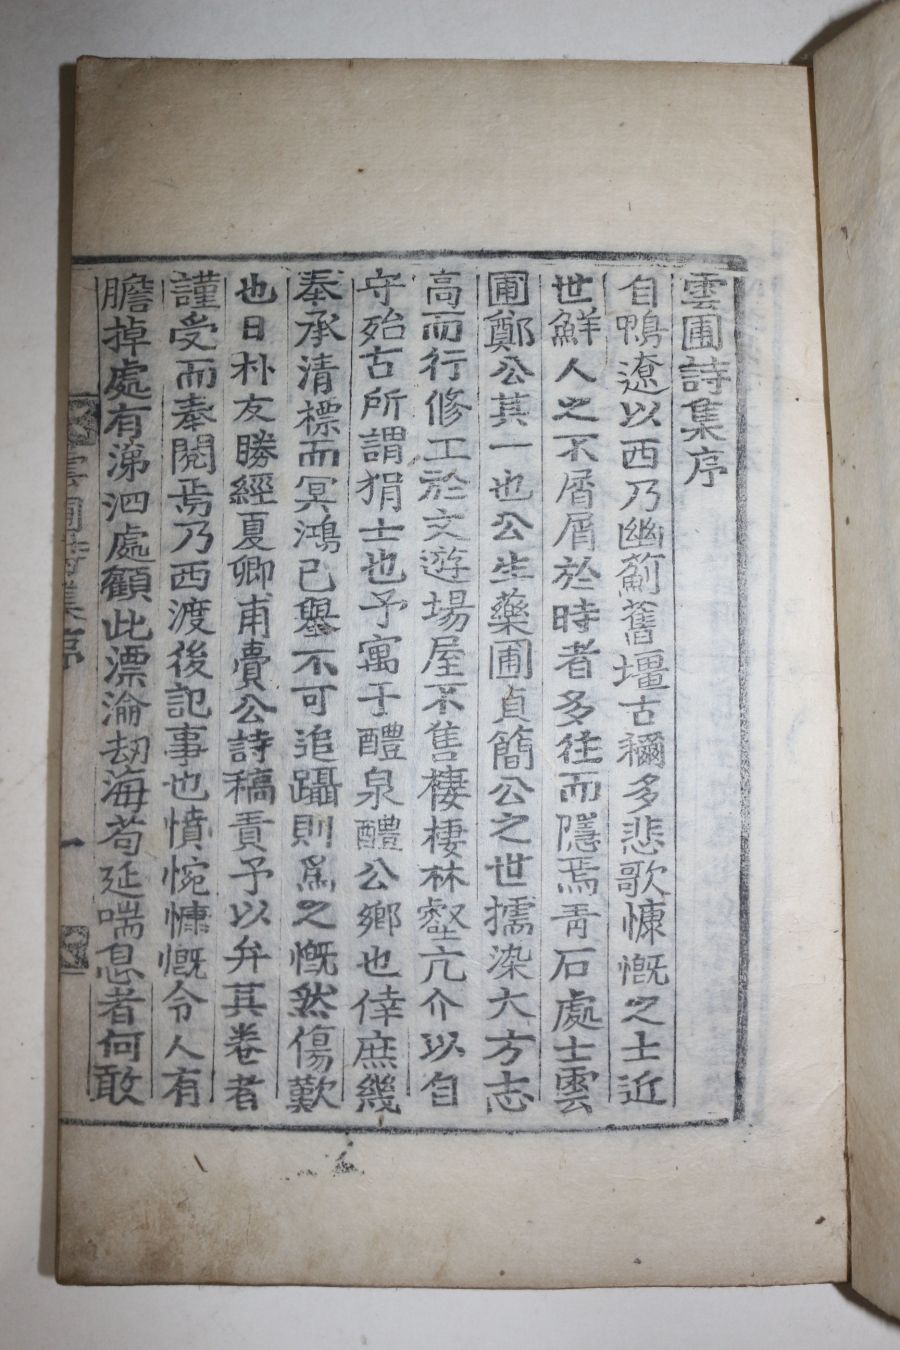 雲圃詩集序
自鴨遼以西乃幽薊舊壃古稱多悲歌慷慨之士近
世鮮人之不屑屑於時者多往而隱焉靑石處士雲
圃鄭公其一也公生藥圃貞簡公之世擩染大方志
高而行修工於文遊場屋不售棲棲林壑亢介以自
守殆古所謂狷士也予寓于醴泉醴公鄕也倖庶幾
奉承淸標而冥鴻已擧不可追躡則爲之慨然傷歎
也日朴友勝經夏卿甫賷公詩稿責予以弁其卷者
謹受而奉閱焉乃西渡後記事也憤惋慷慨令人有
膽掉處有涕泗處顧此漂淪劫海苟延喘息者何敢
雲圃詩集序
一